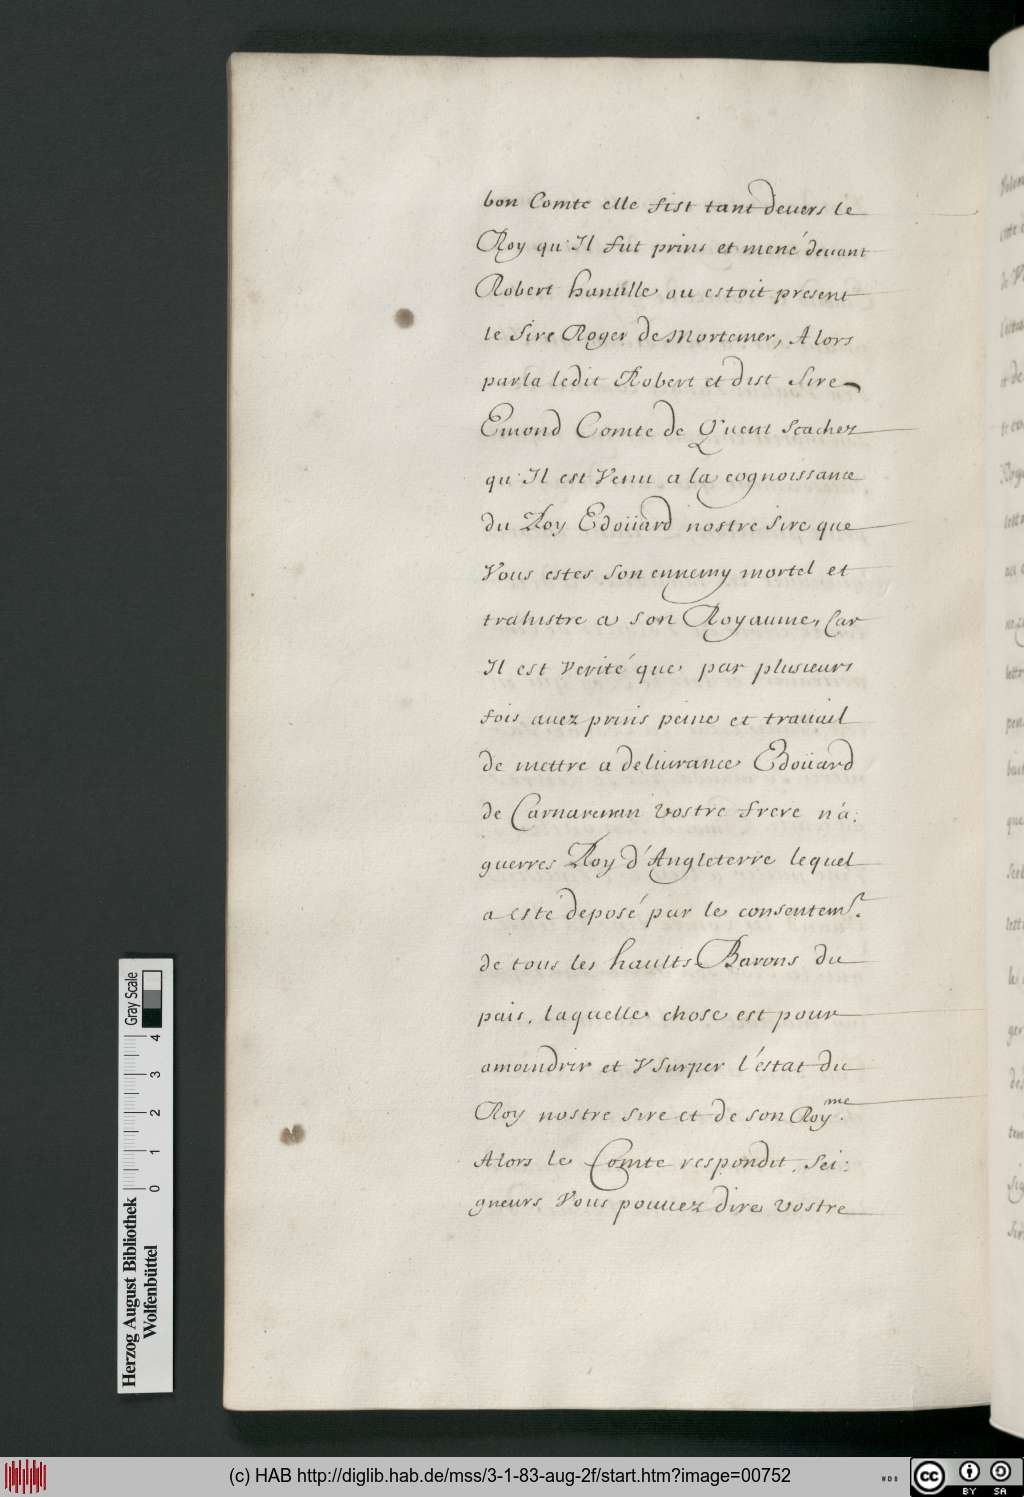 bon Comte elle fist tant deuers le
Roy qu'Il fut prins et mené deuant
Robert hanulle ou estoit present
le Sire Roger de Mortemer, Alors
parla ledit Robert et dist Sire
Emond Comte de Quent Scachez
qu'Il est Venu a la cognoissance
du Roy Edoüard nostre Sire que
Vous estes son ennemy mortel et
trahistre a son Royaume, Car
Il est Verité que par plusieurs
fois auez prins peine et trauail
de mettre a deliurance Edoüard
de Carnaruan vostre frere n'a:
guerres Roy d'Angleterre lequel
a esté deposé par le consentemt.
de tous les haults Barons du
pais, laquelle chose est pour
amoindrir et Vsurper l'estat du
Roy nostre Sire et de son Royme.
Alors le Comte respondit, Sei:
gneurs Vous pouuez dire vostre
Gray Scale
0 1 2 3 4
Herzog August Bibliothek
Wolfenbüttel
(c) HAB http://diglib.hab.de/mss/3-1-83-aug-2f/start.htm?image=00752
WDB
cc BY SA